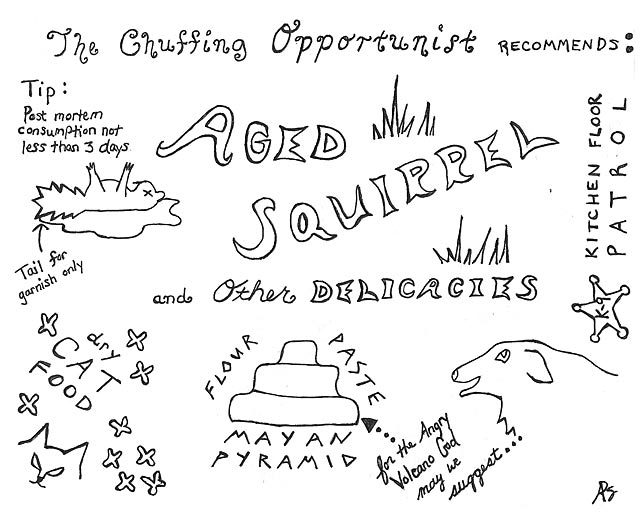 The Chuffing Opportunist RECOMMENDS:
Tip:
Post mortem
consumption not
less than 3 days
AGED
SQUIRREL
and Other DELICACIES
Tail for
garnish only
KITCHEN FLOOR
PATROL
K-9
dry
CAT
FOOD
FLOUR PASTE
MAYAN
PYRAMID
for the Angry
Volcano God
may we
suggest...